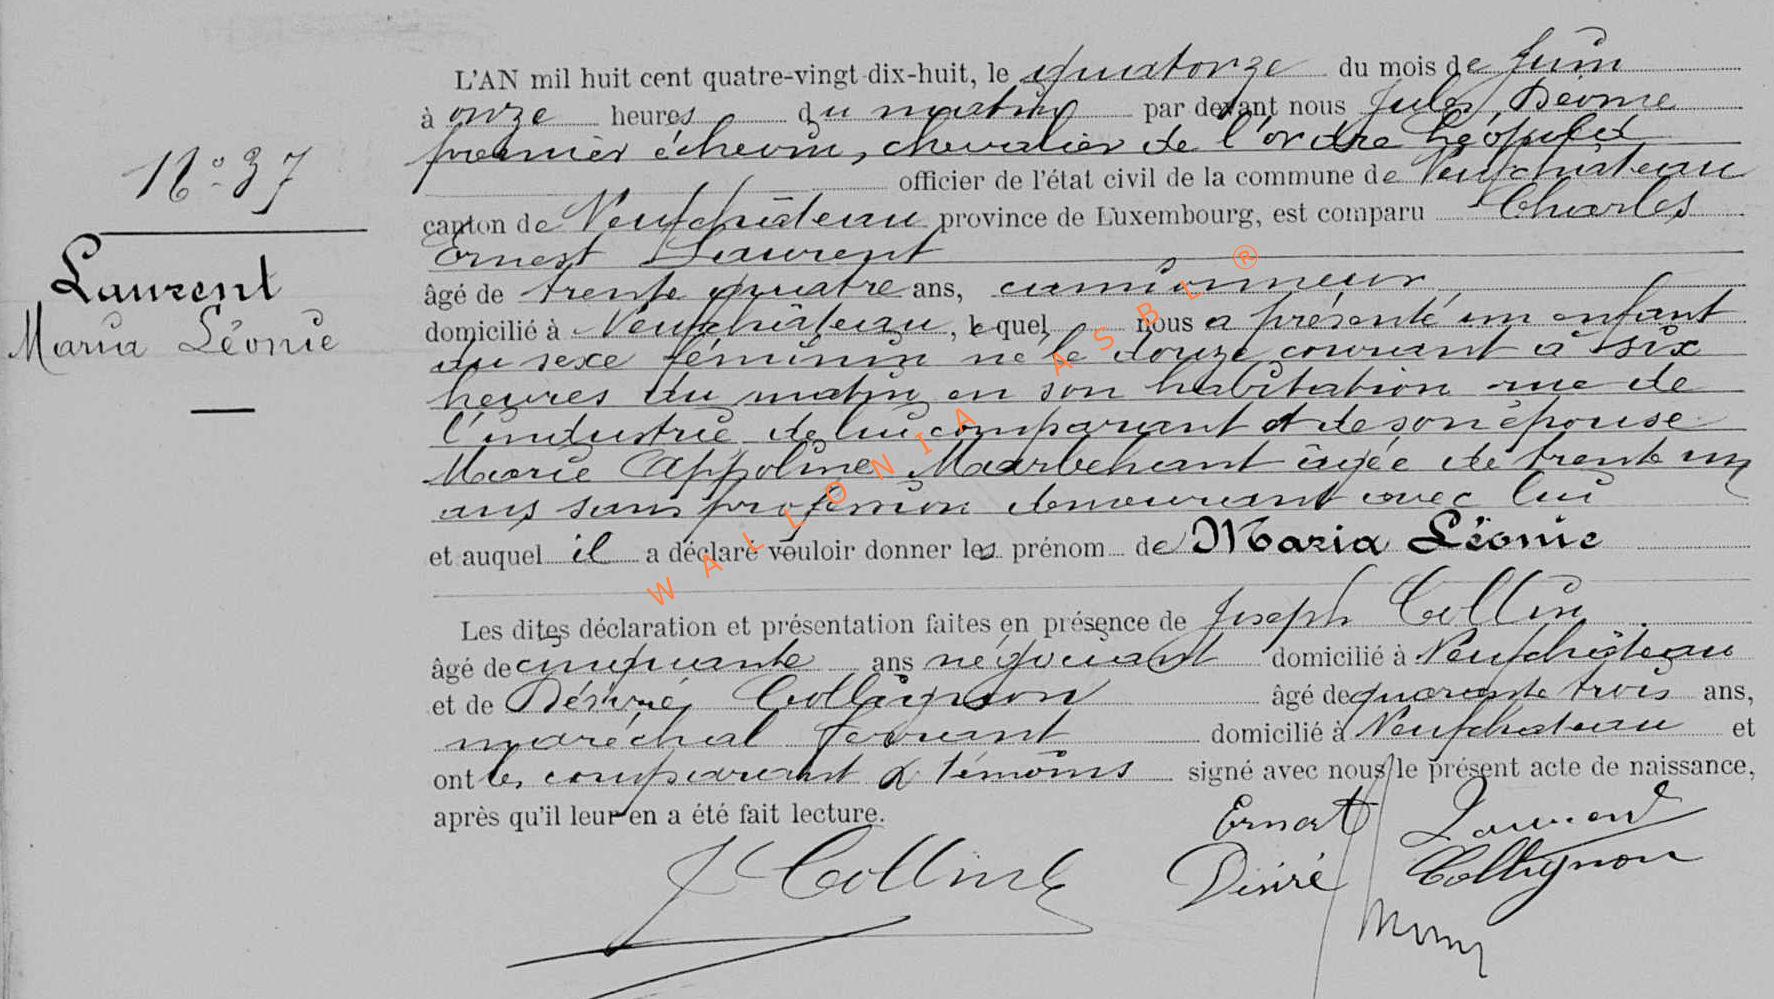 N° 37
Laurent
Maria Léonie
L'AN mil huit cent quatre-vingt dix-huit, le quatorze du mois de Juin
à onze heures du matin par devant nous Jules
premier échevin, chevalier de l'ordre Léopold
officier de l'état civil de la commune de Neufchâteau
canton de Neufchâteau province de Luxembourg, est comparu Charles
Ernest Laurent
âgé de trente quatre ans, camionneur
domicilié à Neufchâteau, lequel nous a présenté un enfant
du sexe féminin né le douze courant à six
heures du matin en son habitation rue de
l'industrie de lui comparant et de son épouse
Marie Appoline âgée de trente un
ans sans profession demeurant avec lui
et auquel il a déclaré vouloir donner les prénom de Maria Léonie
Les dites déclaration et présentation faites en présence de Joseph Collin
âgé de cinquante ans négociant domicilié à Neufchâteau
et de Désiré Collignon âgé de quarante trois ans,
maréchal ferrant domicilié à Neufchateau et
ont les comparant & témoins signé avec nous le présent acte de naissance,
après qu'il leur en a été fait lecture.
Ernest Laurent
J Collin
Désiré Collignon
WALLONIA ASBL ®